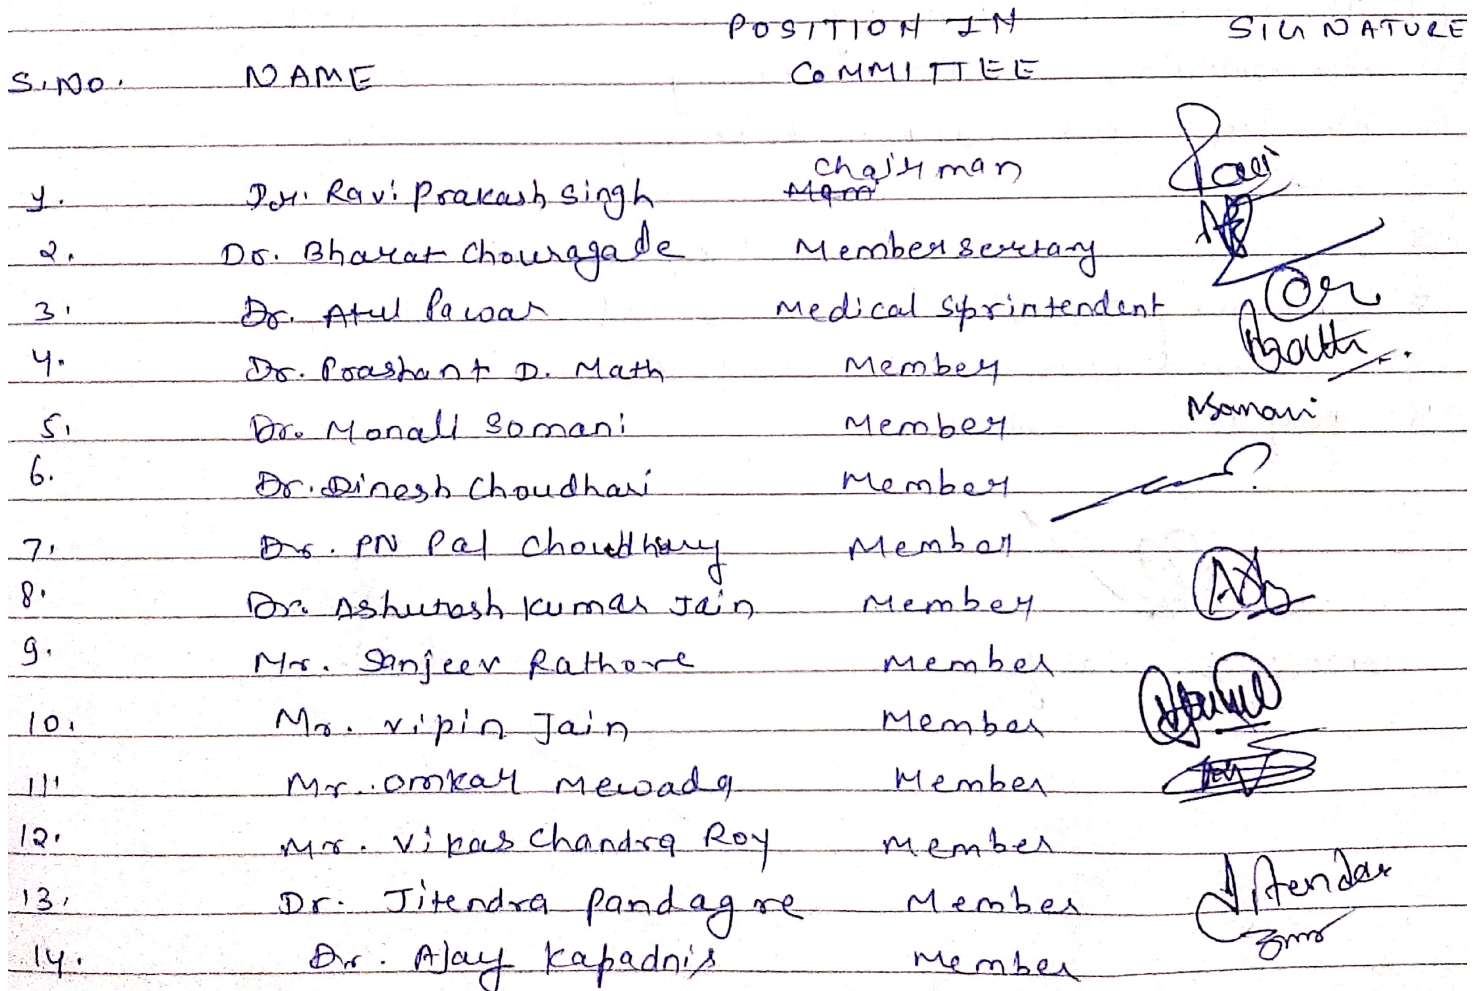 POSITION IN SIGNATURE
S.NO. NAME COMMITTEE
1. Dr. Ravi Prakash Singh Chairman
2. Dr. Bharat Chouragade Member sertary
3. Dr. Atul Pawar Medical Sprintendent
4. Dr. Prashant D. Math Member
5. Dr. Monali Somani Member NSomani
6. Dr. Dinesh Choudhari Member
7. Dr. PN Pal Choudhury Member
8. Dr. Ashutosh Kumar Jain Member
9. Mr. Sanjeev Rathore Member
10. Mr. Vipin Jain Member
11. Mr. Omkar Mewada Member
12. Mr. Vikas Chandra Roy Member
13. Dr. Jitendra Pandagre Member Jitendar
14. Dr. Ajay Kapadnis Member